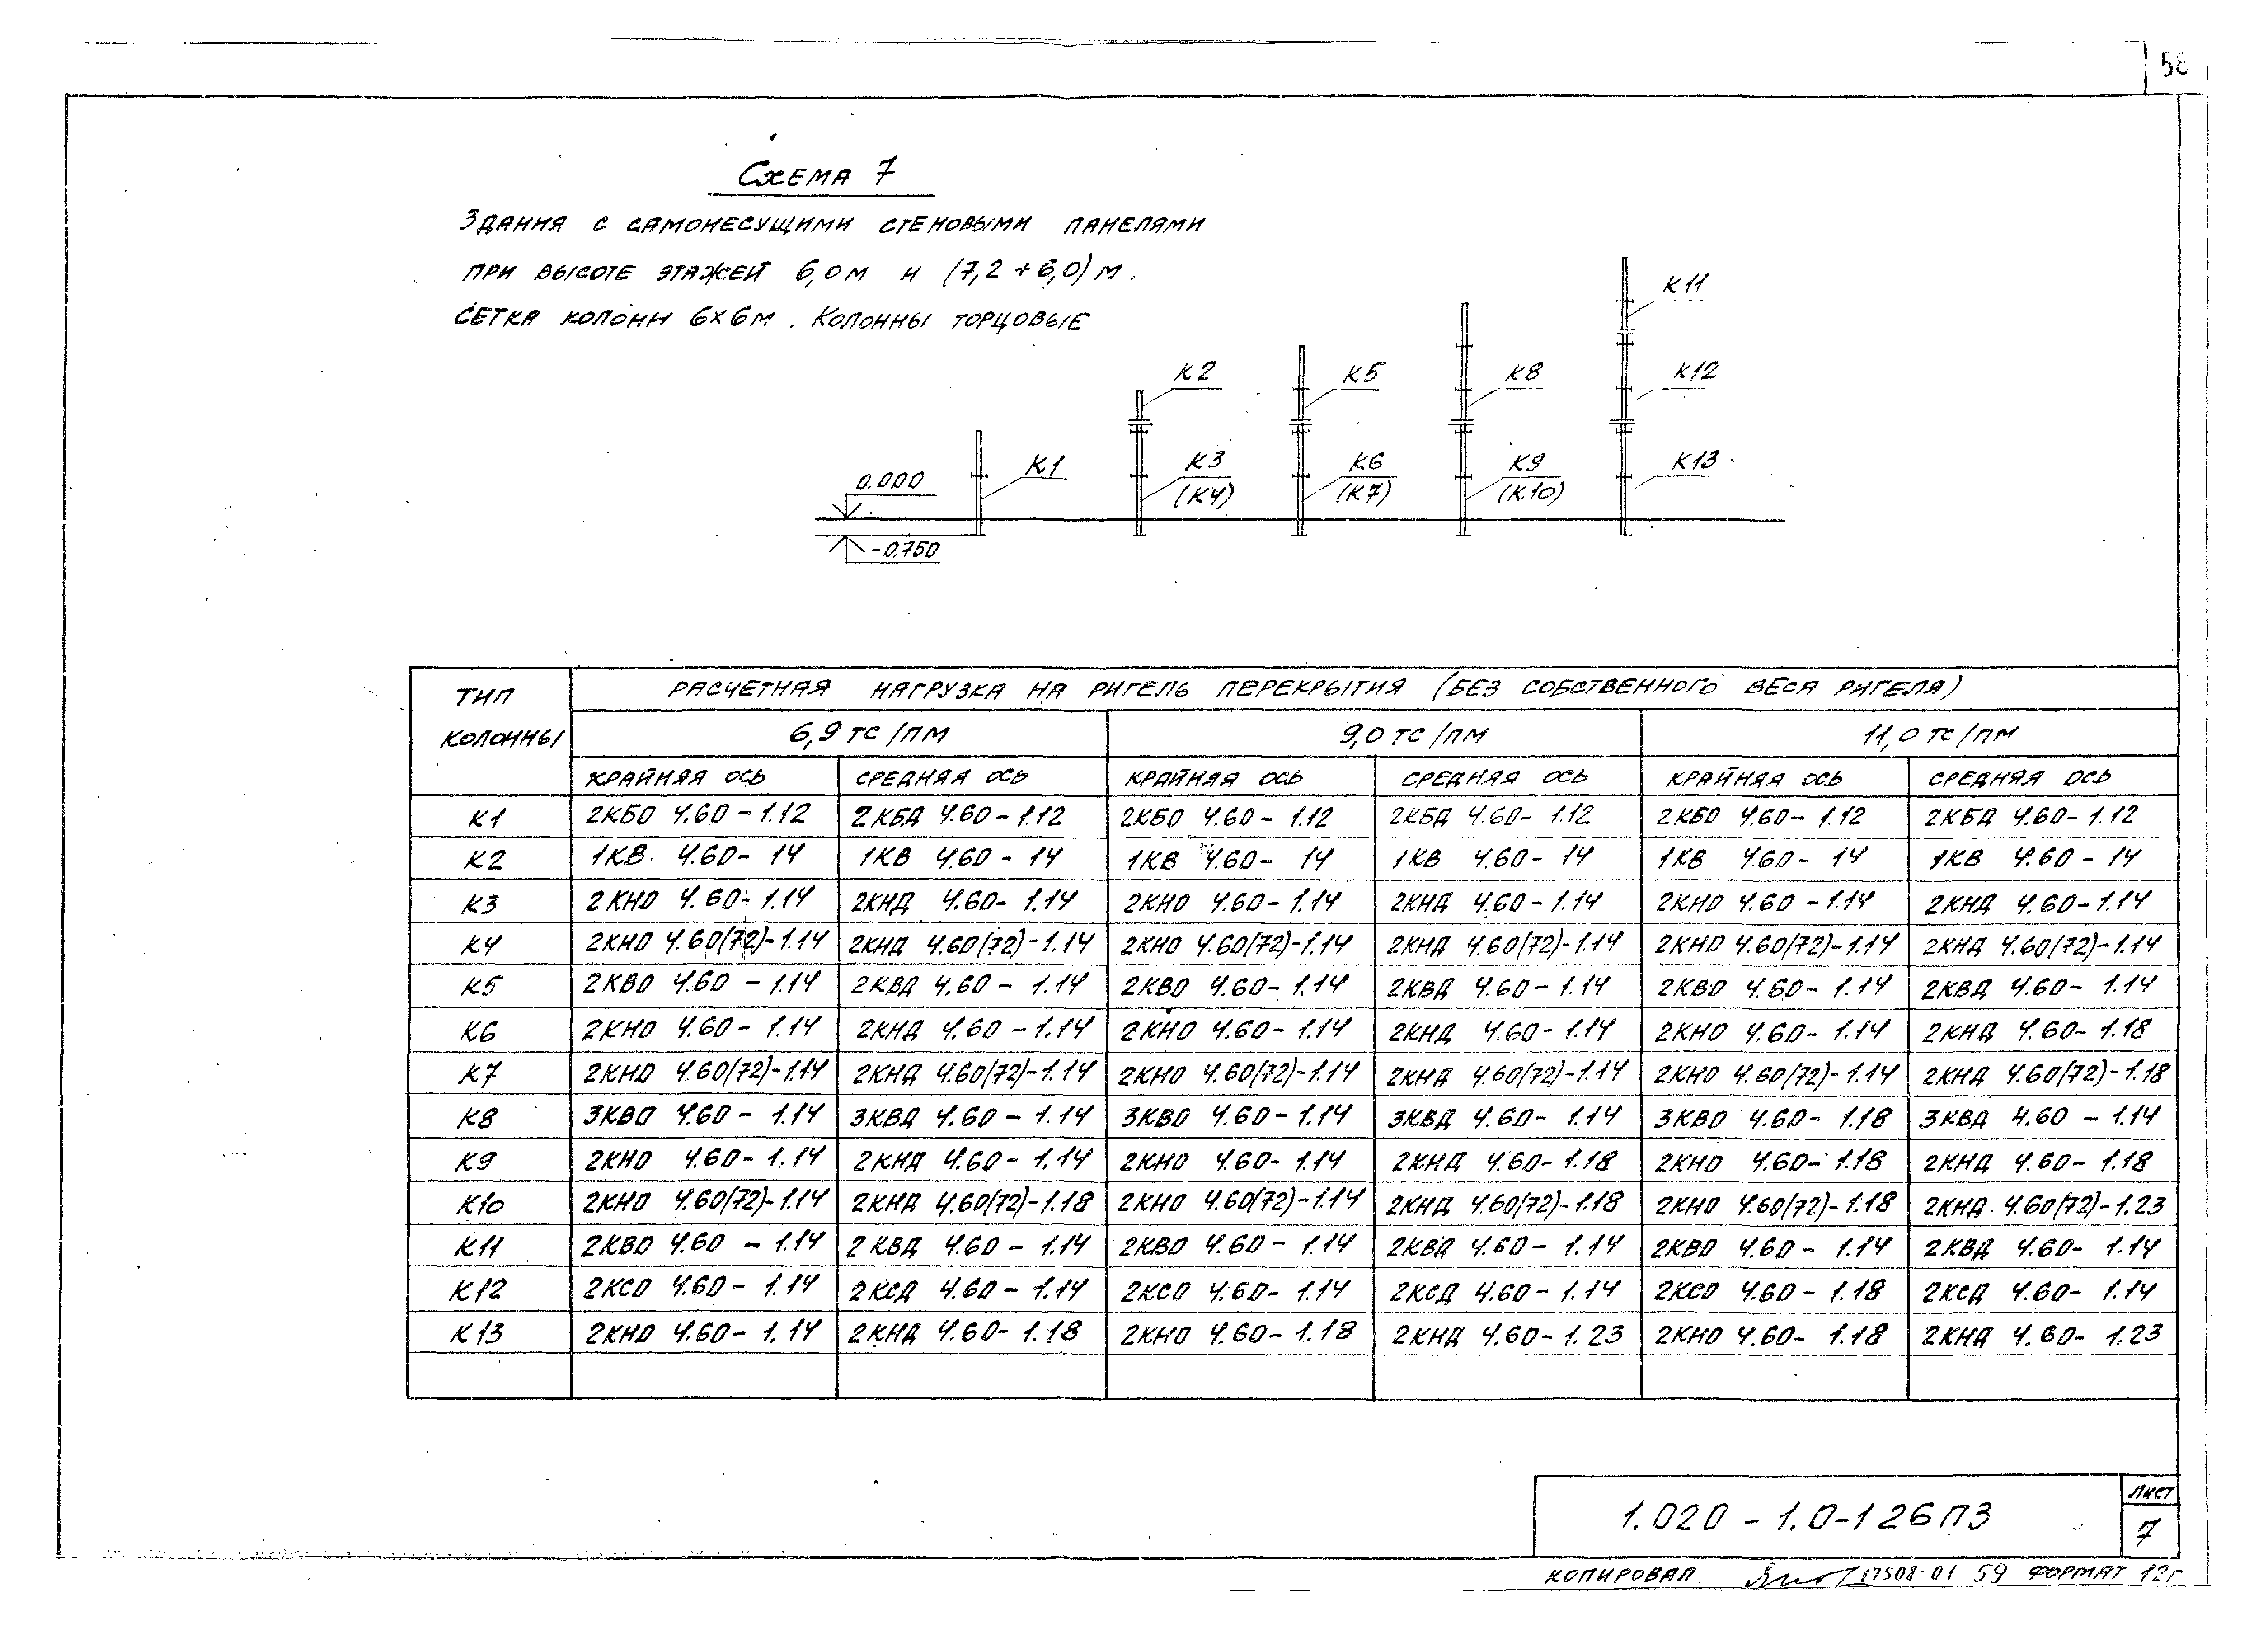 58
Схема 7
Здания с самонесущими стеновыми панелями
при высоте этажей 6,0м и (7,2+6,0)м.
сетка колонн 6х6м. Колонны торцовые
К11
К2 К5 К8 К12
К1 К3 К6 К9 К13
(К4) (К7) (К10)
0.000
-0.750
Тип колонны | Расчетная нагрузка на ригель перекрытия (без собственного веса ригеля)
6,9 тс/пм | 9,0 тс/пм | 11,0 тс/пм
Крайняя ось | Средняя ось | Крайняя ось | Средняя ось | Крайняя ось | Средняя ось
К1 | 2КБО 4.60-1.12 | 2КБД 4.60-1.12 | 2КБО 4.60-1.12 | 2КБД 4.60-1.12 | 2КБО 4.60-1.12 | 2КБД 4.60-1.12
К2 | 1КВ 4.60-14 | 1КВ 4.60-14 | 1КВ 4.60-14 | 1КВ 4.60-14 | 1КВ 4.60-14 | 1КВ 4.60-14
К3 | 2КНО 4.60-1.14 | 2КНД 4.60-1.14 | 2КНО 4.60-1.14 | 2КНД 4.60-1.14 | 2КНО 4.60-1.14 | 2КНД 4.60-1.14
К4 | 2КНО 4.60(72)-1.14 | 2КНД 4.60(72)-1.14 | 2КНО 4.60(72)-1.14 | 2КНД 4.60(72)-1.14 | 2КНО 4.60(72)-1.14 | 2КНД 4.60(72)-1.14
К5 | 2КВО 4.60-1.14 | 2КВД 4.60-1.14 | 2КВО 4.60-1.14 | 2КВД 4.60-1.14 | 2КВО 4.60-1.14 | 2КВД 4.60-1.14
К6 | 2КНО 4.60-1.14 | 2КНД 4.60-1.14 | 2КНО 4.60-1.14 | 2КНД 4.60-1.14 | 2КНО 4.60-1.14 | 2КНД 4.60-1.18
К7 | 2КНО 4.60(72)-1.14 | 2КНД 4.60(72)-1.14 | 2КНО 4.60(72)-1.14 | 2КНД 4.60(72)-1.14 | 2КНО 4.60(72)-1.14 | 2КНД 4.60(72)-1.18
К8 | 3КВО 4.60-1.14 | 3КВД 4.60-1.14 | 3КВО 4.60-1.14 | 3КВД 4.60-1.14 | 3КВО 4.60-1.18 | 3КВД 4.60-1.14
К9 | 2КНО 4.60-1.14 | 2КНД 4.60-1.14 | 2КНО 4.60-1.14 | 2КНД 4.60-1.18 | 2КНО 4.60-1.18 | 2КНД 4.60-1.18
К10 | 2КНО 4.60(72)-1.14 | 2КНД 4.60(72)-1.18 | 2КНО 4.60(72)-1.14 | 2КНД 4.60(72)-1.18 | 2КНО 4.60(72)-1.18 | 2КНД 4.60(72)-1.23
К11 | 2КВО 4.60-1.14 | 2КВД 4.60-1.14 | 2КВО 4.60-1.14 | 2КВД 4.60-1.14 | 2КВО 4.60-1.14 | 2КВД 4.60-1.14
К12 | 2КСО 4.60-1.14 | 2КСД 4.60-1.14 | 2КСО 4.60-1.14 | 2КСД 4.60-1.14 | 2КСО 4.60-1.18 | 2КСД 4.60-1.14
К13 | 2КНО 4.60-1.14 | 2КНД 4.60-1.18 | 2КНО 4.60-1.18 | 2КНД 4.60-1.23 | 2КНО 4.60-1.18 | 2КНД 4.60-1.23
1.020-1.0-126ПЗ
Лист
7
Копировал 17508-01 59 Формат 12г